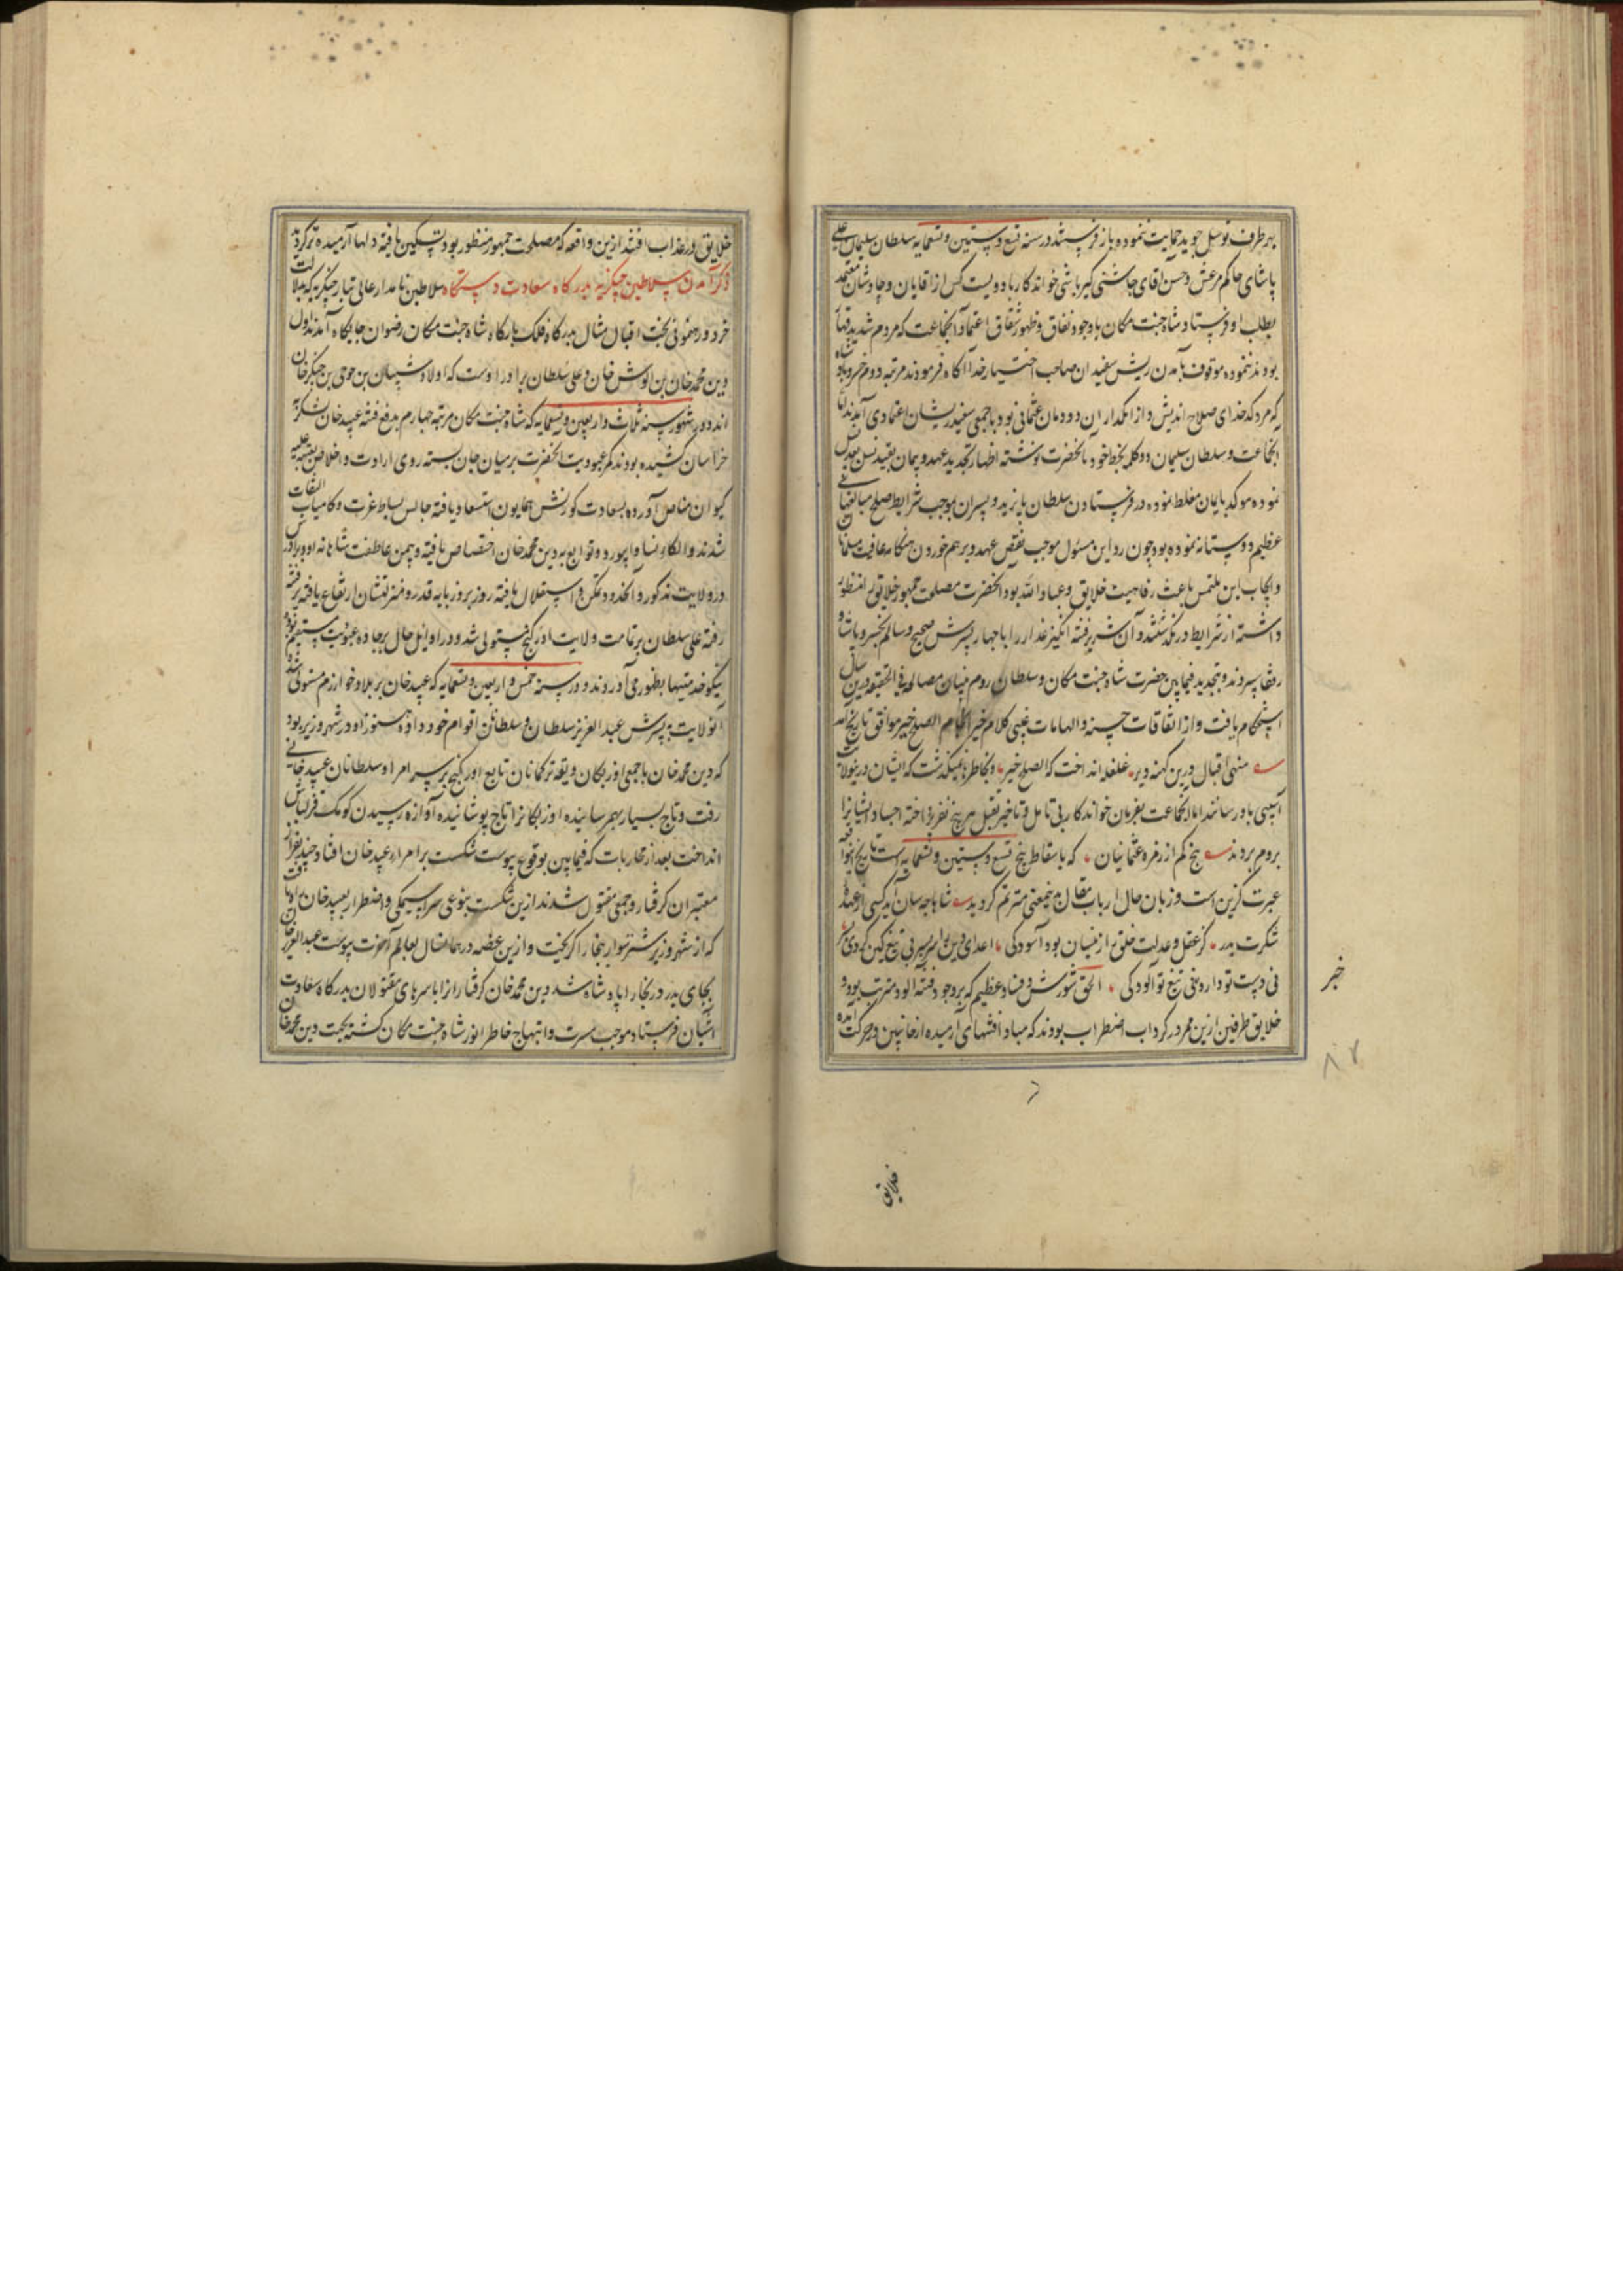 بهر طرف توسل جوید حمایت نموده باز فرستند در سنه تسع و ستین و تسعمایه سلطان سلیمان علی
پاشای حاکم مرعش و حسن اقای چاشنی کیر باشی خواندکار با دویست کس از اقایان و چاوشان معتمد
بطلب او فرستاد شاه جنت مکان باوجود نفاق و ظهور شقاق اعتماد آنجماعت که مردم شدید
بودند ننموده موقوف بآمدن ریش سفیدان صاحب اختیار خدا آکاه فرمودند مرتبه دوم خسرو پاشا
که مرد کدخدای صلاح اندیش و از دودمان عثمانی بود با جمعی سفیدریشان اعتمادی آمدند
آنجماعت و سلطان سلیمان دو کلمه بخط خود بآنحضرت نوشته اظهار تجدید عهد و پیمان بقید
نموده موکد بایمان مغلظ نموده در فرستادن سلطان بایزید و پسران بموجب شرایط صلح مبالغهای
عظیم دوستانه نموده بود چون رد این مسئول موجب نقض عهد و برهم خوردن هنکامه عافیت مسلمانان
و ایجاب این ملتمس باعث رفاهیت خلایق و عباد الله بود آنحضرت مصلحت جمهور خلایق را منظور
داشته از شرایط در نکذشتند و آن شریر فتنه انکیز غدار را با چهار پسرش صحیح و سالم بخسرو پاشا و
رفقا سپردند و بتجدید فیمابین حضرت شاه جنت مکان و سلطان روم بنیان مصالحه فی الحقیقه درین سال
استحکام یافت و از اتفاقات حسنه و الهامات غیبی کلام خیر انجام الصلح خیر موافق تاریخ آمد
منهی اقبال درین کهنه دیر غلغله انداخت که الصلح خیر و بخاطرها نمیکذشت که ایشان در ینولایت
آسیبی باو رسانند اما آنجماعت بفرمان خواندکار بی تامل و تاخیر بقتل هر پنج نفر پرداخته اجساد ایشانرا
بروم بردند پنج کم از زمره عثمانیان که باسقاط پنج تسع و ستین و تسعمایه است تاریخ
عبرت کزین است و زبان حال ارباب مقال بدینمعنی مترنم کردید شاها چه سان آید کسی از عهده
شکرت بدر کز عقل و عدلت خلق را از بنیان بود آسودکی اعدای دین را سر بسر بی تیغ کین کردی
نی دست تو دارد نی تیغ تو آلودکی الحق شورش و فساد عظیم که بر وجود فتنه آلود مترتب بود و
خلایق طرفین ازین ممر در کرداب اضطراب بودند که مبادا فتنهای آرمیده از جانبین در حرکت آمده
خبر
۸۲
خلایق
خلایق در عذاب افتند ازین واقعه که مصلحت جمهور منظور بود تسکین یافته دلها آرمیده تر کردید
ذکر آمدن سلاطین چنکیزیه بدرکاه سعادت دستکاه سلاطین نامدار عالی تبار چنکیزیه که بدلالت
خرد و رهنمونی بخت اقبال مثال بدرکاه فلک بارکاه شاه جنت مکان رضوان جایکاه آمدند اول
دین محمد خان بن الوش خان و علی سلطان برادر اوست که اولاد شیبان بن جوجی بن چنکیزخان
اند در شهور سنه ثلاث و اربعین و تسعمایه که شاه جنت مکان مرتبه چهارم بدفع فتنه عبید خان لشکر به
خراسان کشیده بودند کمر عبودیت آنحضرت بر میان جان بسته روی ارادت و اخلاص بعتبه علیه
کیوان مناص آورده بسعادت کورنش همایون استسعاد یافته جالس بساط عزت و کامیاب التفات
شدند و الکاء نسا و ابیورد و توابع به دین محمد خان اختصاص یافته و بیمن عاطفت شاهانه او و برادرش
در ولایت مذکوره آنحدود تمکن و استقلال یافته روز بروز پایه قدر و منزلتشان ارتفاع یافته رفته
رفته علی سلطان بر تمامت ولایت اورکنج مستولی شد و در اوایل حال بر جاده عبودیت مستقیم بوده
نیکو خدمتیها بظهور می آوردند و در سنه خمس و اربعین و تسعمایه که عبید خان بر بلاد خوارزم مستولی شده
آنولایت به پسرش عبد العزیز سلطان و سلطانان اقوام خود داده هنوز او در شهر وزیر بود
که دین محمد خان با جمعی اوزبکان و یقه ترکمانان تابع اورکنج بر سر امرا و سلطانان عبید خانی
رفت و تاج بسیار بهم رسانیده اوزبکانرا تاج پوشانیده آوازه رسیدن کومک قزلباش
انداخت بعد از محاربات که فیمابین بوقوع پیوست شکست بر امراء عبید خان افتاد و چند نفر از
معتبران کرفتار و جمعی مقتول شدند ازین شکست بنوعی سراسیمکی و اضطرار بعبید خان راه یافت
که از شهر وزیر شتر سوار ببخارا کریخت و ازین غصه در همانسال بعالم آخرت پیوست عبد العزیز خان
بجای پدر در بخارا پادشاه شد دین محمد خان کرفتارانرا با سرهای مقتولان بدرکاه سعادت
آشیان فرستاد موجب مسرت و ابتهاج خاطر انور شاه جنت مکان کشته بجهت دین محمد خان